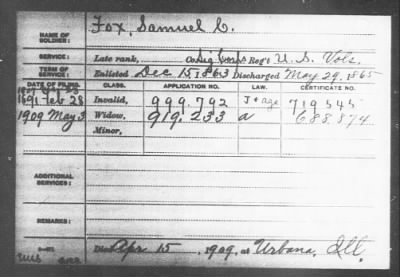 NAME OF SOLDIER: Fox, Samuel C.
SERVICE: Late rank, Co. Sig Corps Reg't U. S. Vols.
TERM OF SERVICE: Enlisted Dec 15, 1863 Discharged May 29, 1865
DATE OF FILING. CLASS. APPLICATION NO. LAW. CERTIFICATE NO.
1891 Feb 28 Invalid, 999.792 J + age 719545
1909 May 3 Widow, 919.233 a 688874
Minor,
ADDITIONAL SERVICES:
REMARKS:
Died Apr 15, 1909, at Urbana, Ill.